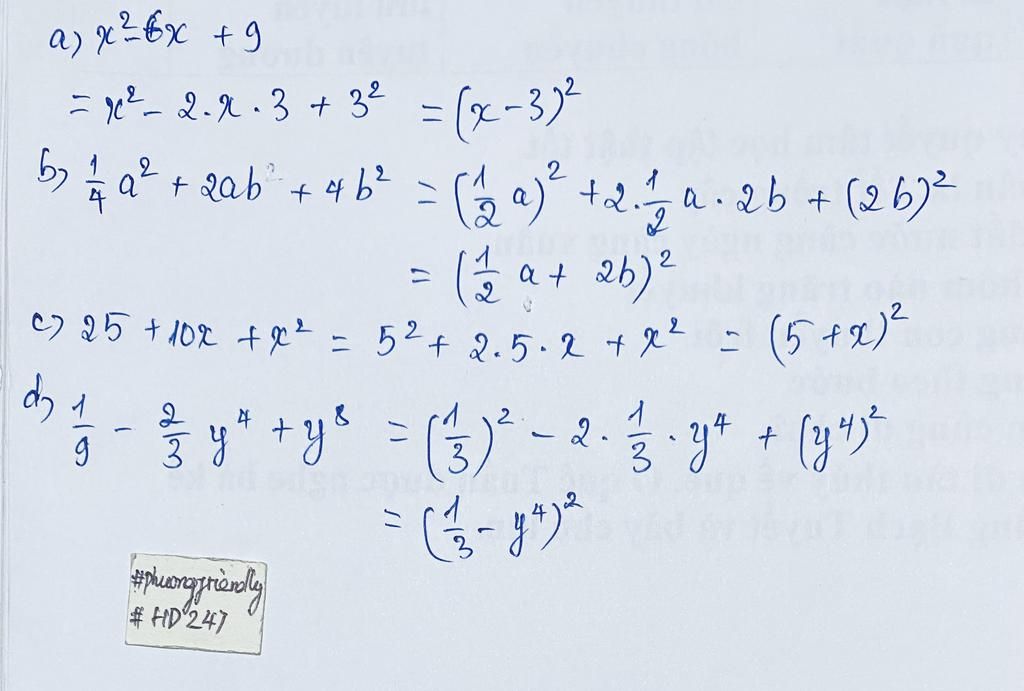 a) x² - 6x + 9
= x² - 2.x.3 + 3² = (x - 3)²
b) 1/4 a² + 2ab² + 4b² = (1/2 a)² + 2.1/2 a.2b + (2b)²
= (1/2 a + 2b)²
c) 25 + 10x + x² = 5² + 2.5.x + x² = (5 + x)²
d) 1/9 - 2/3 y⁴ + y⁸ = (1/3)² - 2.1/3.y⁴ + (y⁴)²
= (1/3 - y⁴)²
#phuongfriendly
# HD 247